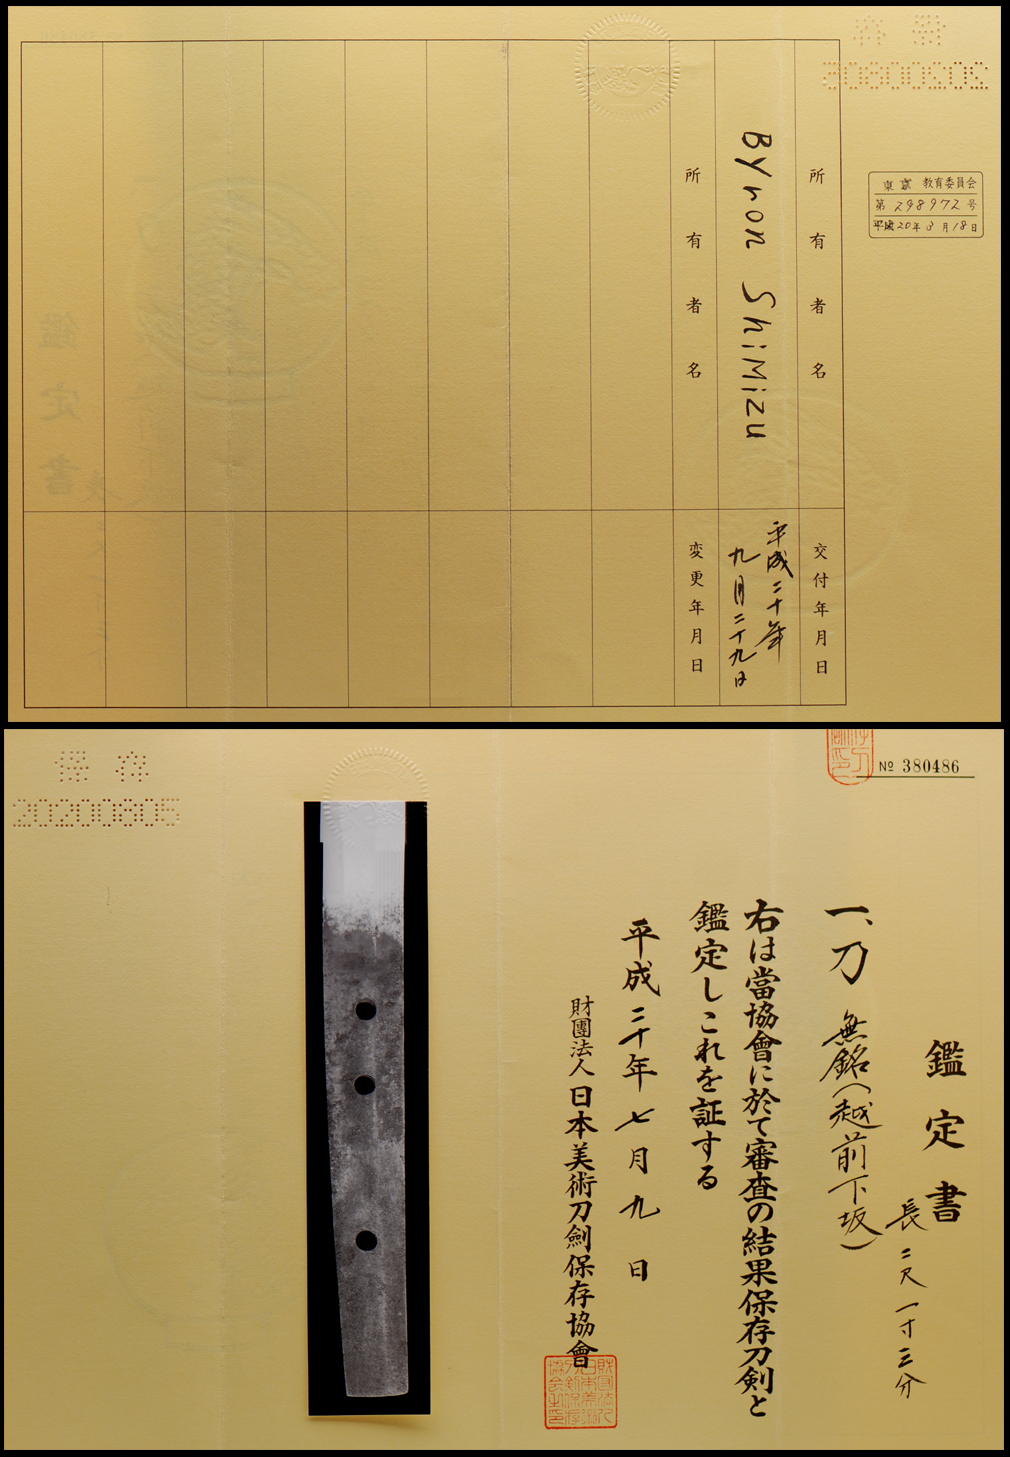 所有者名
交付年月日
Byron Shimizu
平成二十年
九月二十九日
所有者名
変更年月日
東京 教育委員会
第 298972 号
平成20年 3月18日
保存
20200805
№ 380486
鑑定書
一、刀 無銘(越前下坂)
長二尺一寸三分
右は當協會に於て審査の結果保存刀剣と
鑑定しこれを証する
平成二十年七月九日
財團法人 日本美術刀劍保存協會